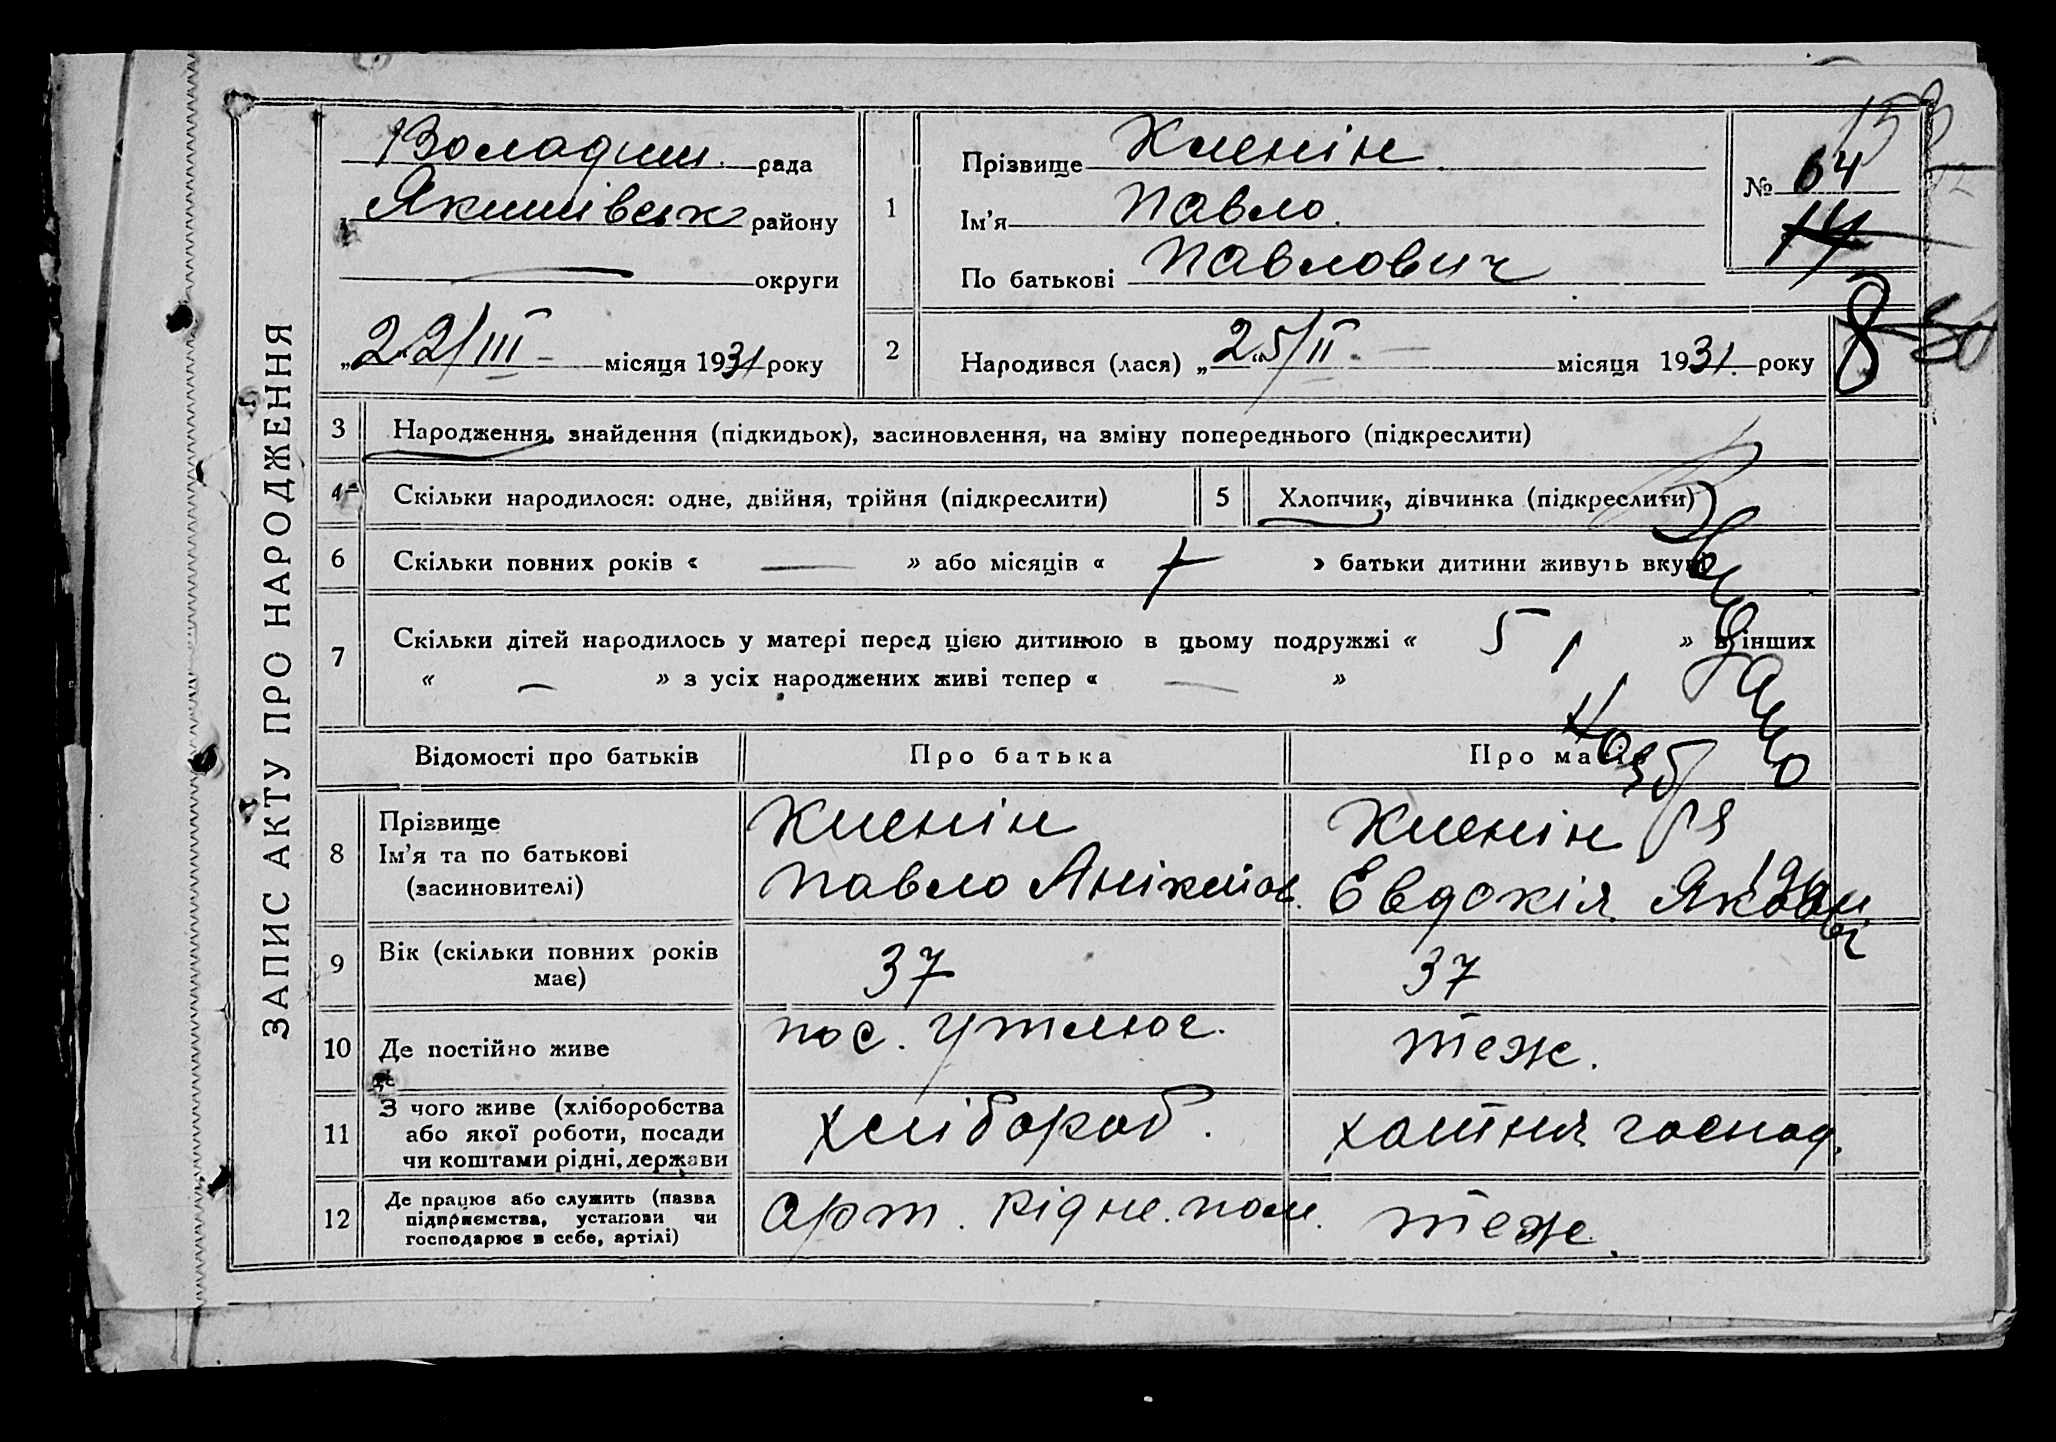 ЗАПИС АКТУ ПРО НАРОДЖЕННЯ
Володим. рада
Якимівськ району
округи
„22/III місяця 1931 року
1
Прізвище Кленін
Ім'я Павло.
По батькові Павлович
№ 64
14
8
2
Народився (лася) „25/II. місяця 1931. року
3 Народження, знайдення (підкидьок), засиновлення, на зміну попереднього (підкреслити)
4 Скільки народилося: одне, двійня, трійня (підкреслити)
5 Хлопчик, дівчинка (підкреслити)
6 Скільки повних років « — » або місяців « » батьки дитини живуть вкупі
7 Скільки дітей народилось у матері перед цією дитиною в цьому подружжі « 5 » в інших
« — » з усіх народжених живі тепер « — »
Видано
Відомості про батьків
Про батька
Про матір
8 Прізвище
Ім'я та по батькові
(засиновителі)
Кленін
Павло Анікейов.
Кленін
Евдокія Яковл.
9 Вік (скільки повних років
має)
37
37
10 Де постійно живе
пос. Утлюг.
теж.
11 З чого живе (хліборобства
або якої роботи, посади
чи коштами рідні, держави
хлібороб.
хатня господ.
12 Де працює або служить (назва
підприємства, установи чи
господарює в себе, артілі)
арт. Рідне. пол.
теж.